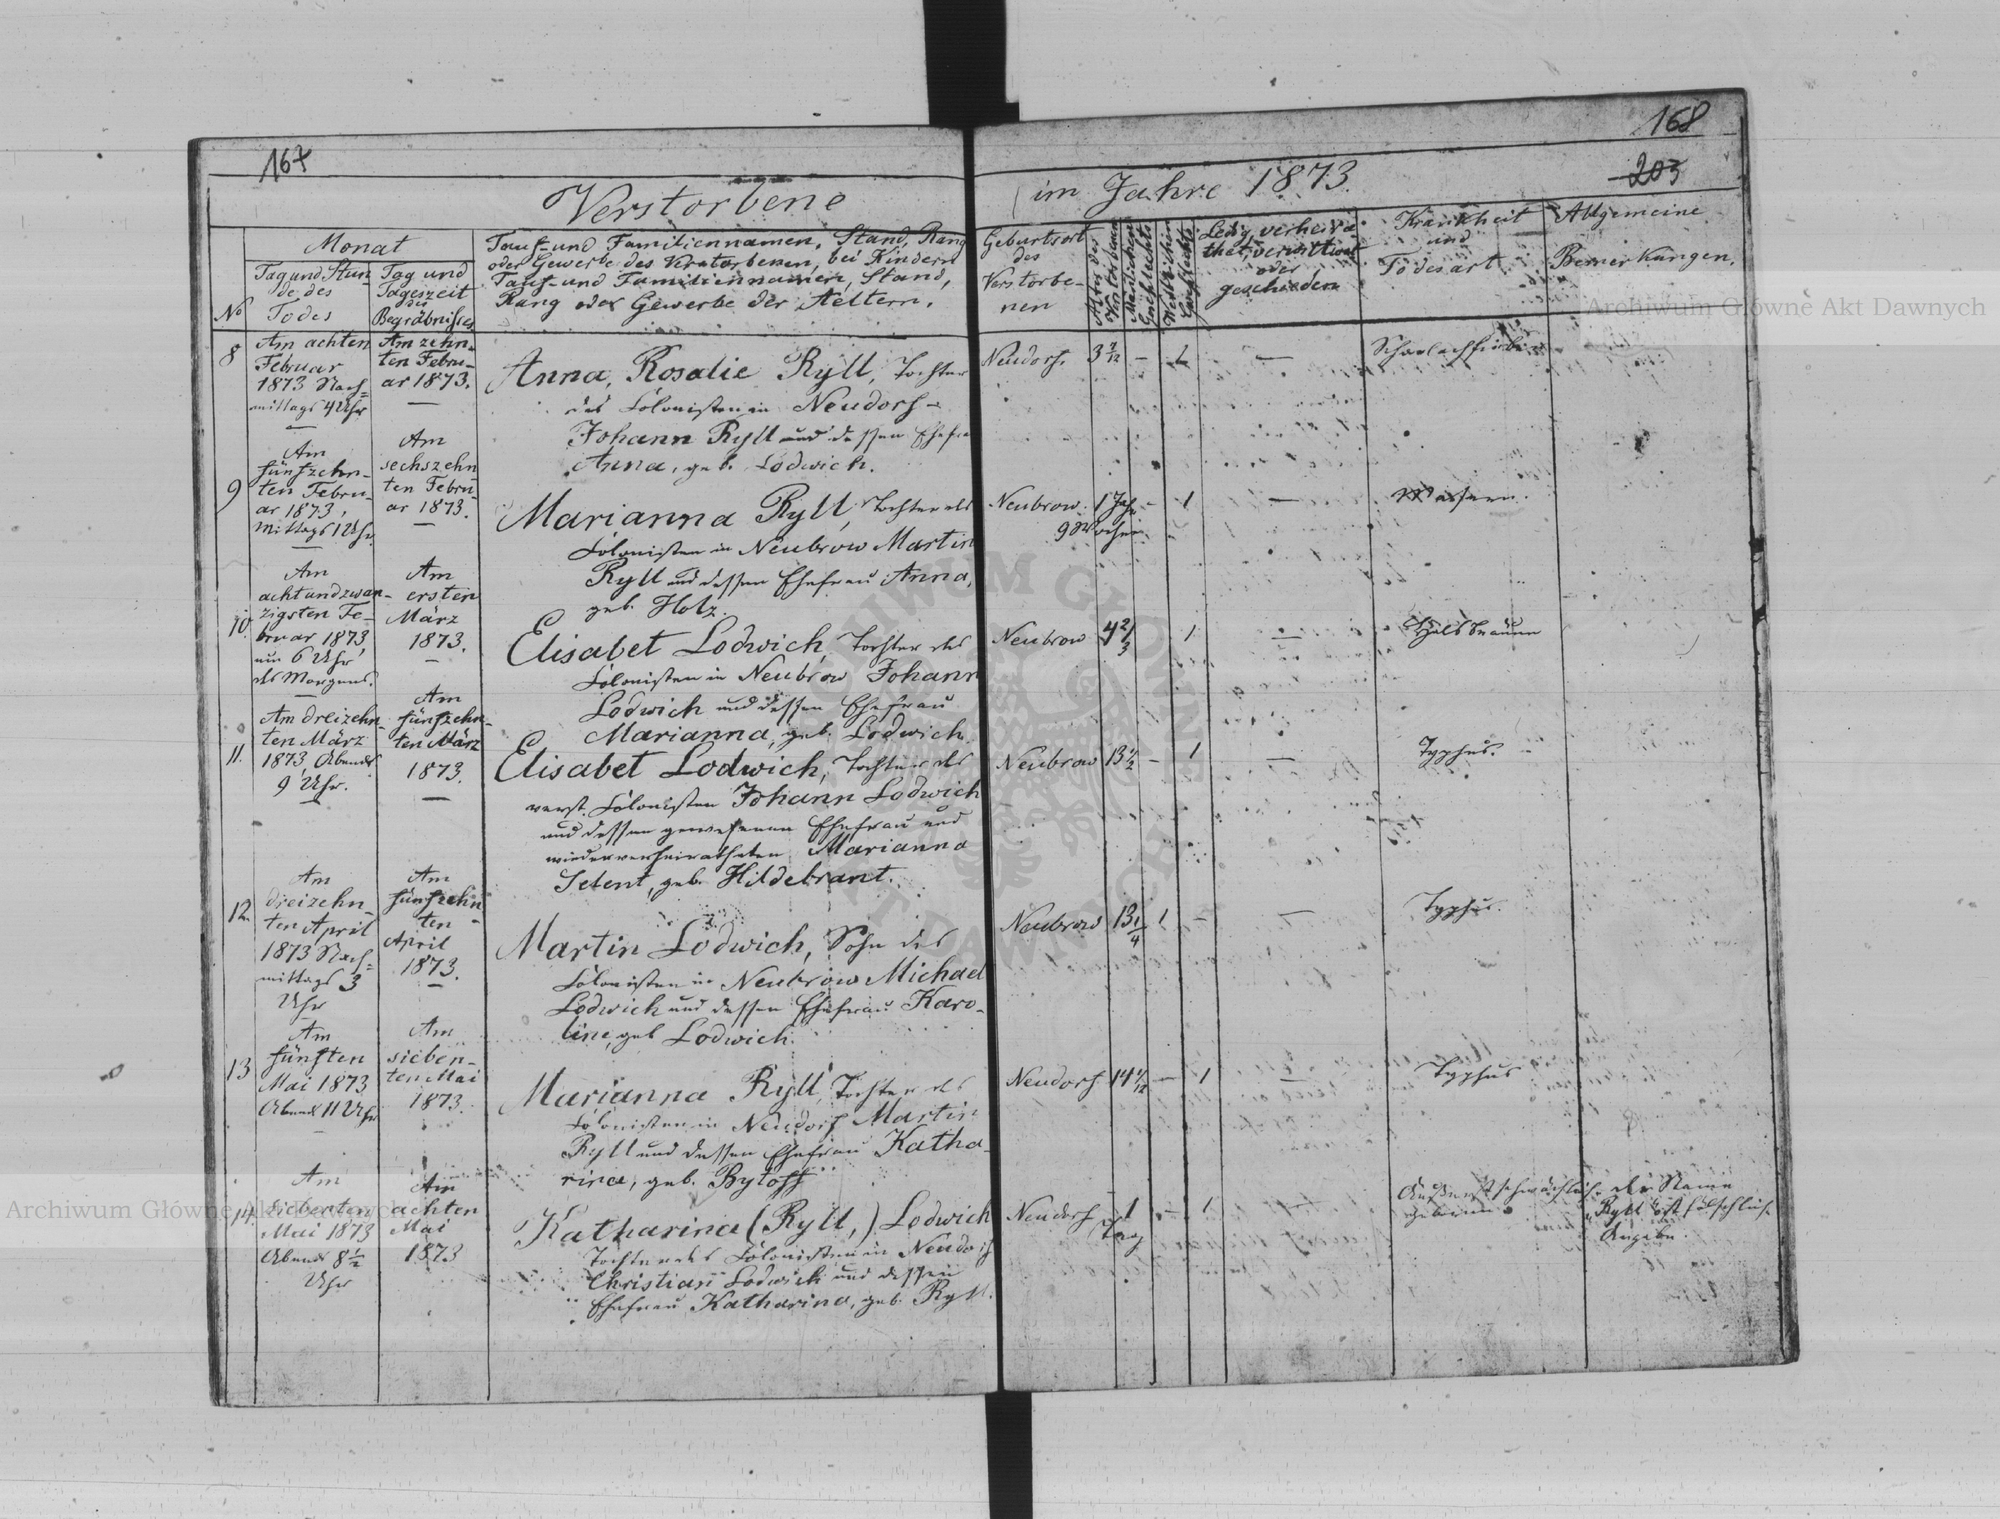 167
168
203
Verstorbene im Jahre 1873.
No
Monat
Tag und Stun-
de des
Todes
Tag und
Tageszeit
des
Begräbnisses
Tauf- und Familiennamen, Stand, Rang
oder Gewerbe des Verstorbenen, bei Kindern
Tauf- und Familiennamen, Stand,
Rang oder Gewerbe der Aeltern.
Geburtsort
des
Verstorbe-
nen
Alter des
Verstorbenen
Männlichen
Geschlechts
Weiblichen
Geschlechts
Ledig, verheira-
thet, verwittwet
oder
geschieden
Krankheit
und
Todesart
Allgemeine
Bemerkungen.
8
Am achten
Februar
1873 Nach=
mittags 4 Uhr
Am zehn-
ten Febru-
ar 1873.
Anna, Rosalie Ryll, Tochter
des Colonisten in Neudorf
Johann Ryll und dessen Ehefr.
Anna, geb. Lodwich.
Neudorf. 3 2/12 — 1 — Scharlachfieber
9
Am
fünfzehn-
ten Febru-
ar 1873,
Mittags 1 Uhr.
Am
sechszehn
ten Febru-
ar 1873.
Marianna Ryll, Tochter des
Colonisten in Neubrow Martin
Ryll und dessen Ehefrau Anna,
geb. Holz.
Neubrow. 1 Jahr — 1 — Masern.
9 Wochen
10.
Am
achtundzwan-
zigsten Fe-
bruar 1873,
um 6 Uhr
des Morgens.
Am
ersten
März
1873.
Elisabet Lodwich, Tochter des
Colonisten in Neubrow Johann
Lodwich und dessen Ehefrau
Marianna, geb. Lodwich.
Neubrow 4 2/3 1 — Halsbräune
11.
Am dreizehn-
ten März
1873 Abends
9 Uhr.
Am
fünfzehn-
ten März
1873.
Elisabet Lodwich, Tochter des
verst. Colonisten Johann Lodwich
und dessen gewesenen Ehefrau und
wiederverheiratheten Marianna
Setent, geb. Hildebrant.
Neubrow 13 1/2 — 1 — Typhus.
12.
Am
dreizehn-
ten April
1873 Nach=
mittags 3
Uhr
Am
fünfzehn-
ten
April
1873.
Martin Lodwich, Sohn des
Colonisten in Neubrow Michael
Lodwich und dessen Ehefrau Karo-
line, geb Lodwich.
Neubrow 13 1/4 1 — — Typhus.
13
Am
fünften
Mai 1873
Abends 11 Uhr
Am
sieben-
ten Mai
1873.
Marianna Ryll, Tochter des
Colonisten in Neudorf Martin
Ryll und dessen Ehefrau Katha-
rina, geb. Bytoff
Neudorf 14 1/12 — 1 — Typhus
14.
Am
siebenten
Mai 1873
Abends 8 1/2
Uhr
Am
achten
Mai
1873
Katharina (Ryll,) Lodwich
Tochter des Colonisten in Neudorf
Christian Lodwich und dessen
Ehefrau Katharina, geb. Ryll.
Neudorf 1 — 1 — Äußerst schwächlich
Tag
geboren
der Name
"Ryll" ist fälschlich
Angabe.
Archiwum Główne Akt Dawnych
Archiwum Główne Akt Dawnych
ARCHIWUM GŁÓWNE AKT DAWNYCH